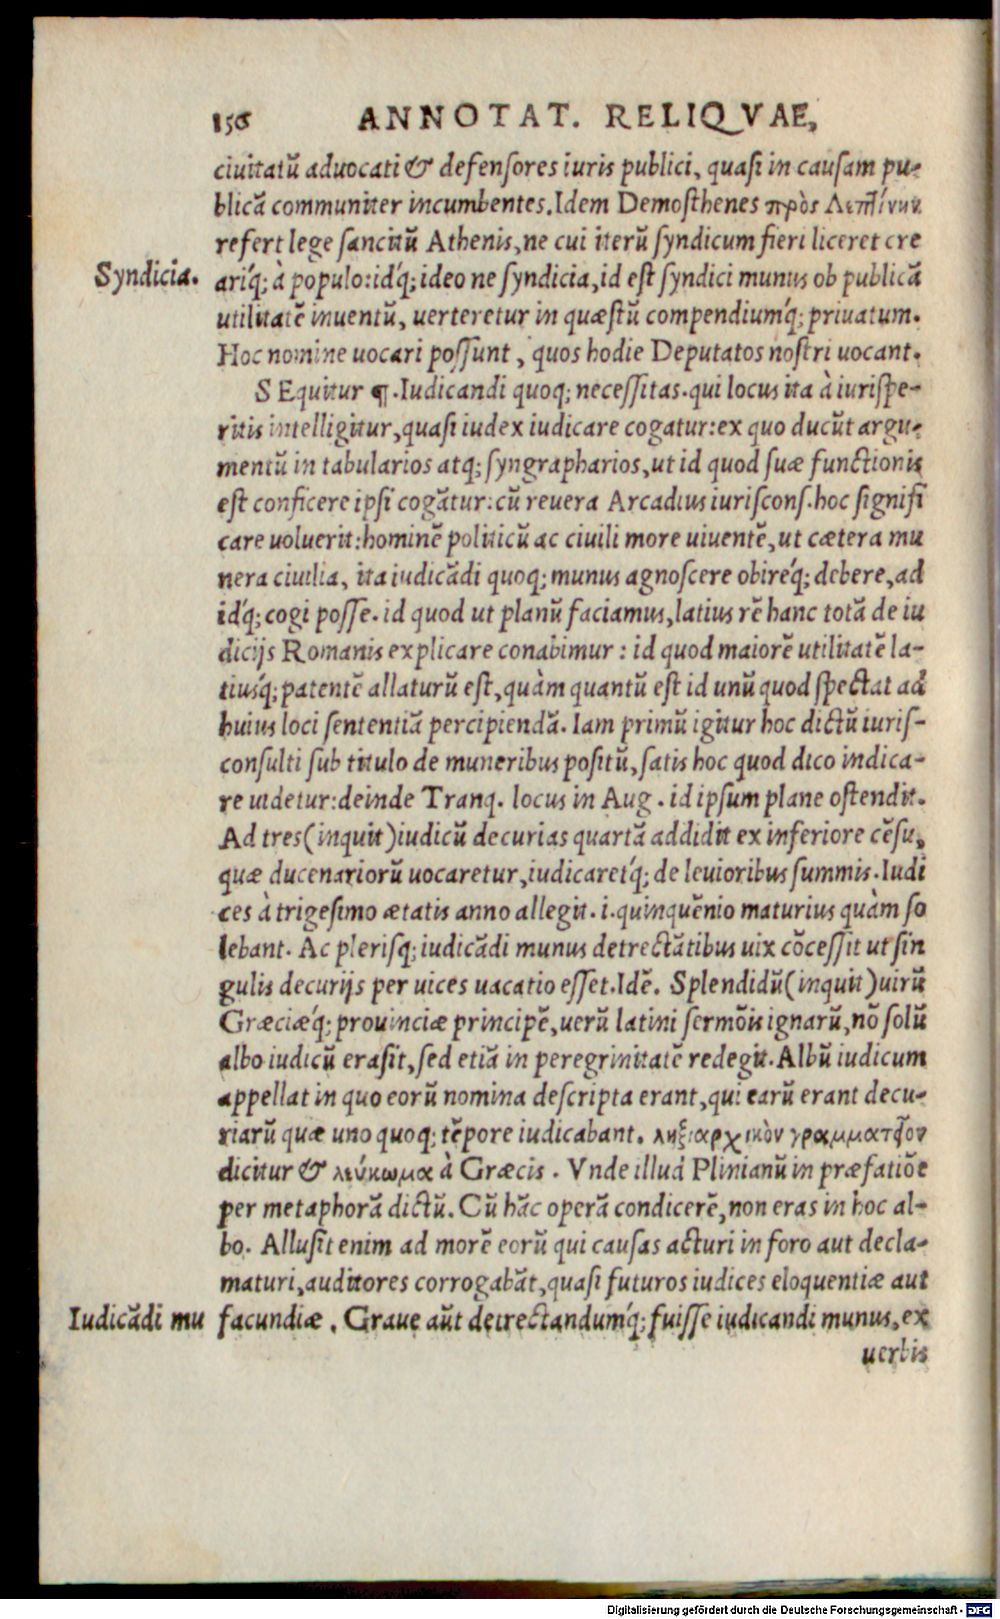 156 ANNOTAT. RELIQVAE,
ciuitatū aduocati & defensores iuris publici, quasi in causam pu-
blicā communiter incumbentes. Idem Demosthenes πρὸς Λεπτίνην
refert lege sancitū Athenis, ne cui iterū syndicum fieri liceret cre
Syndicia.
ariq́; à populo: idq́; ideo ne syndicia, id est syndici munus ob publicā
utilitatē inuentū, uerteretur in quæstū compendiumq́; priuatum.
Hoc nomine uocari possunt, quos hodie Deputatos nostri uocant.
SEquitur ¶. Iudicandi quoq; necessitas. qui locus ita à iurispe-
ritis intelligitur, quasi iudex iudicare cogatur: ex quo ducūt argu-
mentū in tabularios atq; syngrapharios, ut id quod suæ functionis
est conficere ipsi cogātur: cū reuera Arcadius iuriscons. hoc signifi
care uoluerit: hominē politicū ac ciuili more uiuentē, ut cætera mu
nera ciuilia, ita iudicādi quoq; munus agnoscere obireq́; debere, ad
idq́; cogi posse. id quod ut planū faciamus, latius rē hanc totā de iu
dicijs Romanis explicare conabimur: id quod maiorē utilitatē la-
tiusq́; patentē allaturū est, quàm quantū est id unū quod spectat ad
huius loci sententiā percipiendā. Iam primū igitur hoc dictū iuris-
consulti sub titulo de muneribus positū, satis hoc quod dico indica-
re uidetur: deinde Tranq. locus in Aug. id ipsum plane ostendit.
Ad tres (inquit) iudicū decurias quartā addidit ex inferiore cēsu,
quæ ducenariorū uocaretur, iudicaretq́; de leuioribus summis. Iudi
ces à trigesimo ætatis anno allegit. i. quinquēnio maturius quàm so
lebant. Ac plerisq; iudicādi munus detrectātibus uix cōcessit ut sin
gulis decurijs per uices uacatio esset. Idē. Splendidū (inquit) uirū
Græciæq́; prouinciæ principē, uerū latini sermōis ignarū, nō solū
albo iudicū erasit, sed etiā in peregrinitatē redegit. Albū iudicum
appellat in quo eorū nomina descripta erant, qui earū erant decu-
riarū quæ uno quoq; tēpore iudicabant. ληξιαρχικὸν γραμματεῖον
dicitur & λεύκωμα à Græcis. Vnde illud Plinianū in præfatiōe
per metaphorā dictū. Cū hāc operā condicerē, non eras in hoc al-
bo. Allusit enim ad morē eorū qui causas acturi in foro aut decla-
maturi, auditores corrogabāt, quasi futuros iudices eloquentiæ aut
Iudicādi mu
facundiæ. Graue aūt detrectandumq́; fuisse iudicandi munus, ex
uerbis
Digitalisierung gefördert durch die Deutsche Forschungsgemeinschaft - DFG